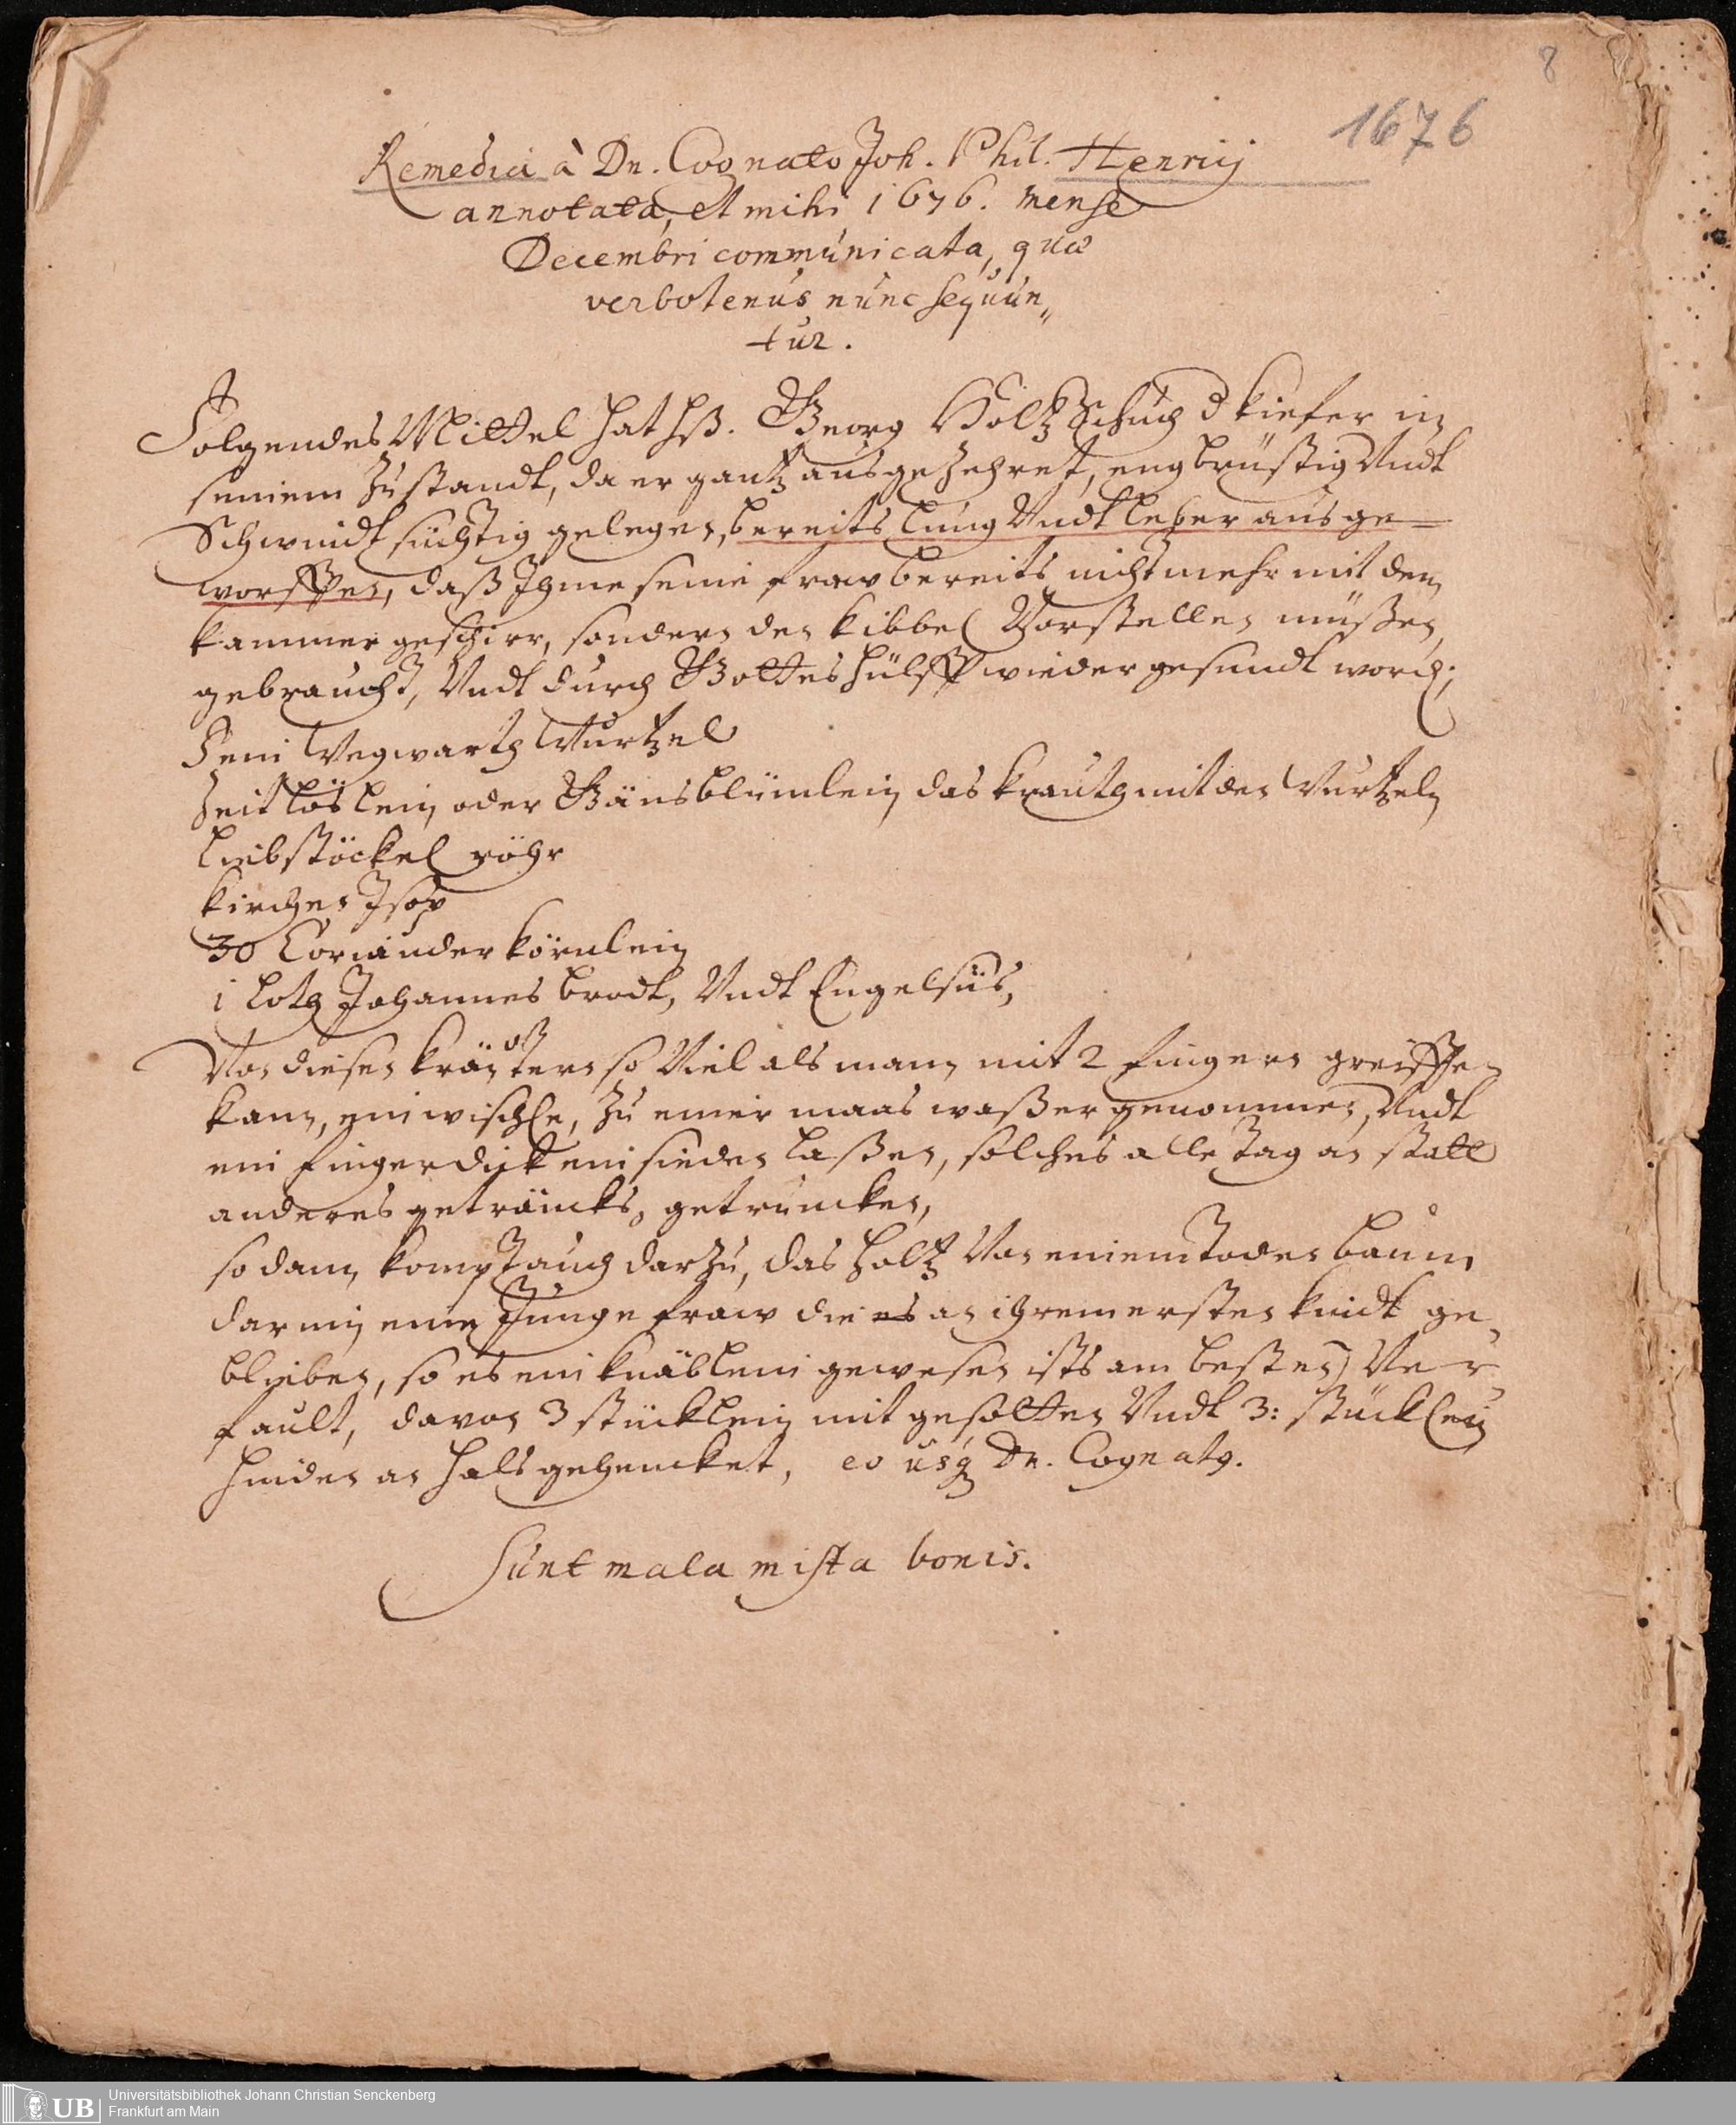 8
1676
Remedia à Dn. Cognato Joh. Phil. Henrici
annotata, et mihi 1676. mense
Decembri communicata, quæ
verbotenus nunc sequun„
tur.
Folgendes Mittel hat Hß. Georg Holtzschuch d kiefer in
seinem Zustandt, da er gantz ausgezehret, engbrüstig Vndt
Schwindtsüchtig gelegen, bereits lung Vndt leber ausge=
worffen, daß Ihme seine fraw bereits nicht mehr mit dem
kammer geschirr, sondern den kibbel Vorstellen müßen,
gebraucht, Vndt durch Gottes hülff wieder gesundt word;
Fein Wegwarth Wurtzel
Zeitlöslein oder Gänsblümlein das krauth mit den Wurtzeln
Liebstöckel röhr
kirchen Isop
30 Coriander körnlein
1 Loth Johannes brodt, Vndt Engelsüs,
Von diesen kräutern so Viel als man mit 2 fingern greiffen
kan, ein wischle, zu einer maas waßer genommen, Vndt
ein finger dick einsieden laßen, solches alle Tag an statt
anderes geträncks, getruncken,
so dann kompt auch darzu, das holtz Von einem Toden baum
darinn eine Junge fraw die es an ihrem ersten kindt ge„
blieben, so es ein knäblein gewesen ists am besten) Ver„
fault, davon 3 stücklein mit gesotten Vndt 3: stücklein
hinden an hals gehencket, eo usq Dn. Cognatg.
Sunt mala mista bonis.
UB
Universitätsbibliothek Johann Christian Senckenberg
Frankfurt am Main